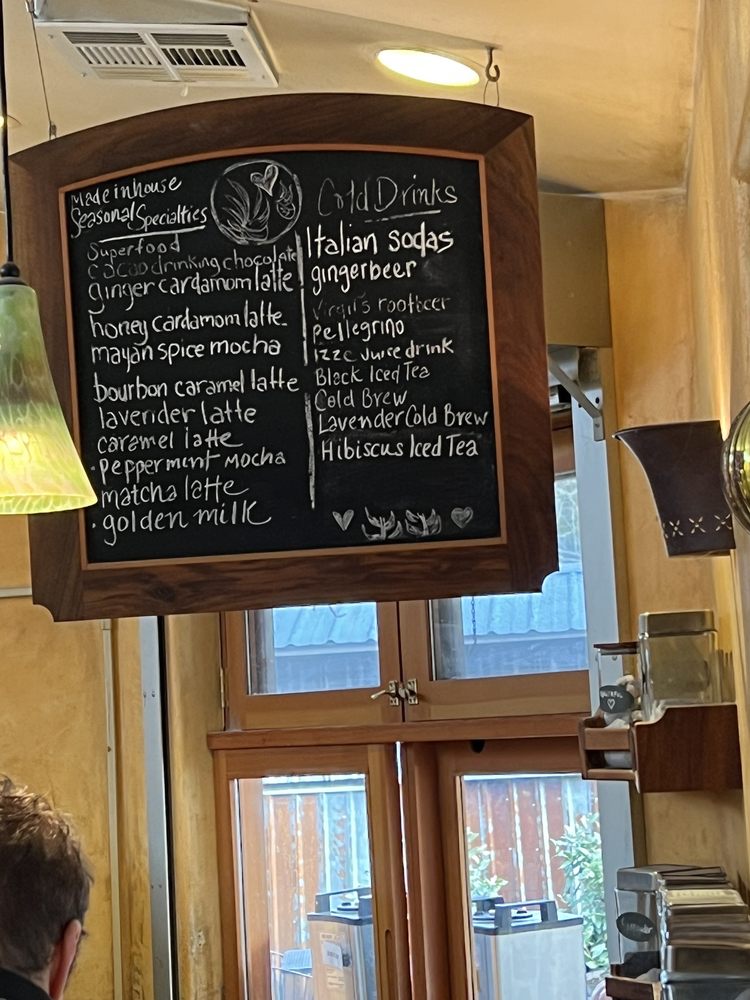 Made inhouse
Seasonal Specialties
Superfood
cacao drinking chocolate
ginger cardamom latte
honey cardamom latte
mayan spice mocha
bourbon caramel latte
lavender latte
caramel latte
· peppermint mocha
matcha latte
· golden milk
Cold Drinks
Italian sodas
gingerbeer
Virgil's rootbeer
pellegrino
izze juice drink
Black Iced Tea
Cold Brew
Lavender Cold Brew
Hibiscus Iced Tea